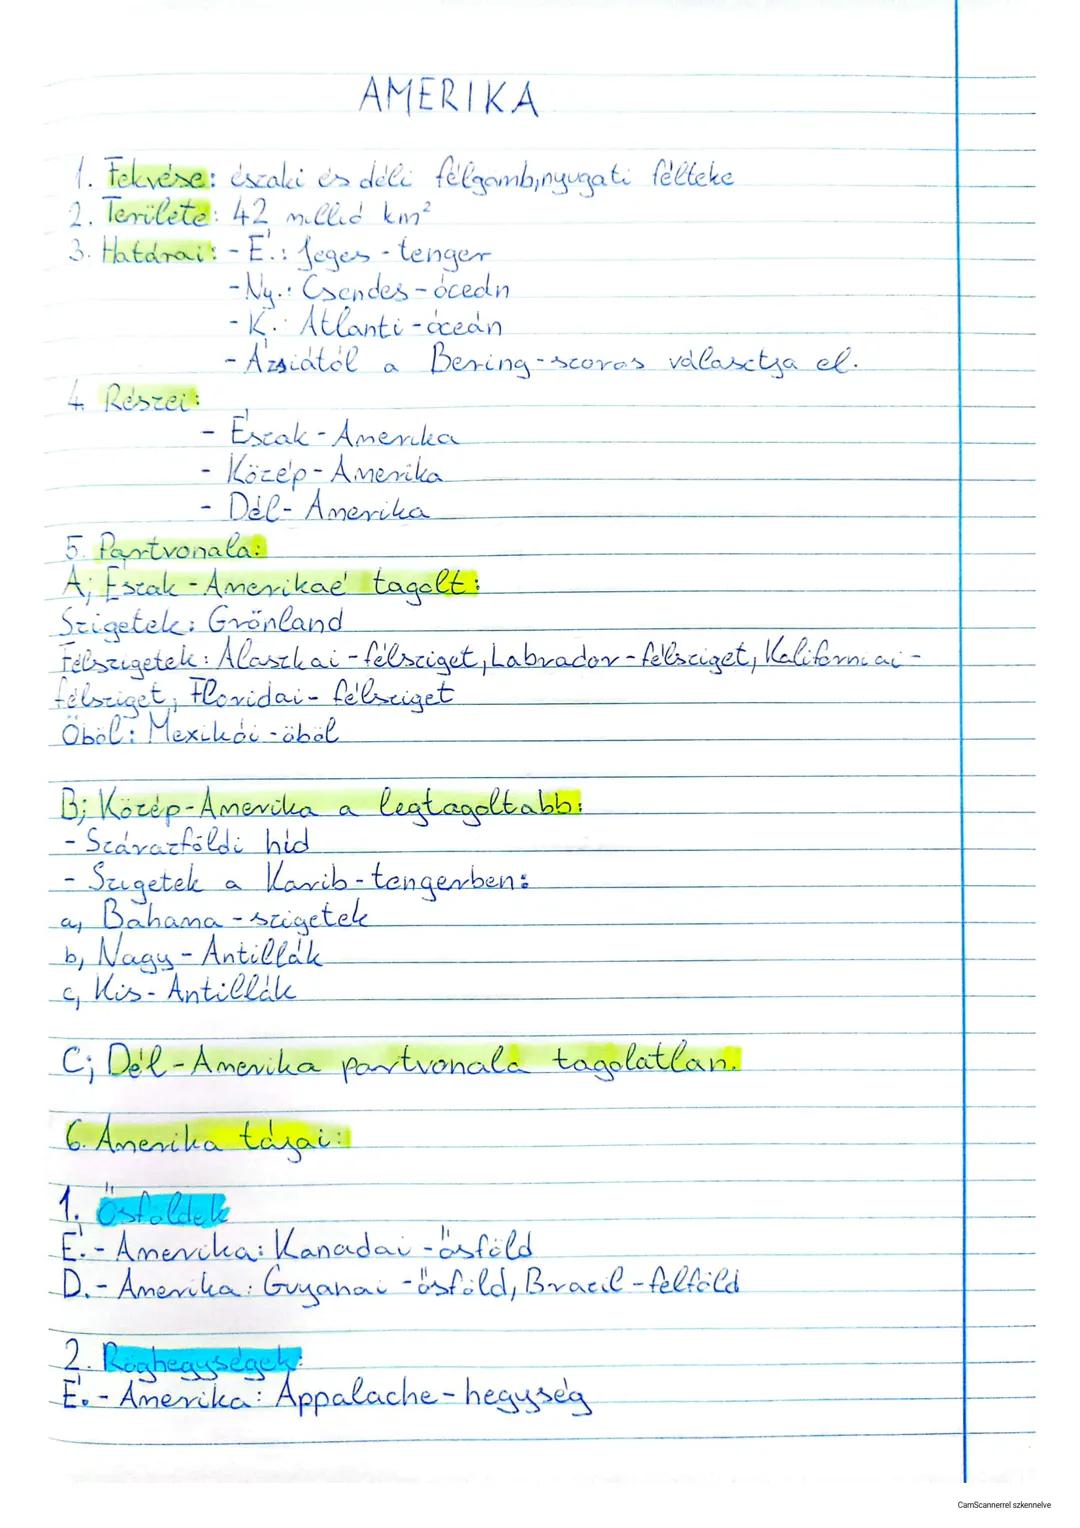 AMERIKA
1. Fekvése: északi és déli félgömb, nyugati félteke
2. Területe: 42 millió km²
3. Határai: - É.: Jeges-tenger
- Ny.: Csendes-óceán
- K.: Atlanti-óceán
- Ázsiától a Bering-szoros választja el.
4. Részei:
- Észak-Amerika
- Közép-Amerika
- Dél-Amerika
5. Partvonala:
A; Észak-Amerikáé tagolt:
Szigetek: Grönland
Félszigetek: Alaszkai-félsziget, Labrador-félsziget, Kaliforniai-
félsziget, Floridai-félsziget
Öböl: Mexikói-öböl
B; Közép-Amerika a legtagoltabb:
- Szárazföldi híd
- Szigetek a Karib-tengerben:
a, Bahama-szigetek
b, Nagy-Antillák
c, Kis-Antillák
C; Dél-Amerika partvonala tagolatlan.
6. Amerika tájai:
1. Ősföldek
É.-Amerika: Kanadai-ősföld
D.-Amerika: Guyanai-ősföld, Brazil-felföld
2. Röghegységek:
É.-Amerika: Appalache-hegység
CamScannerrel szkennelve